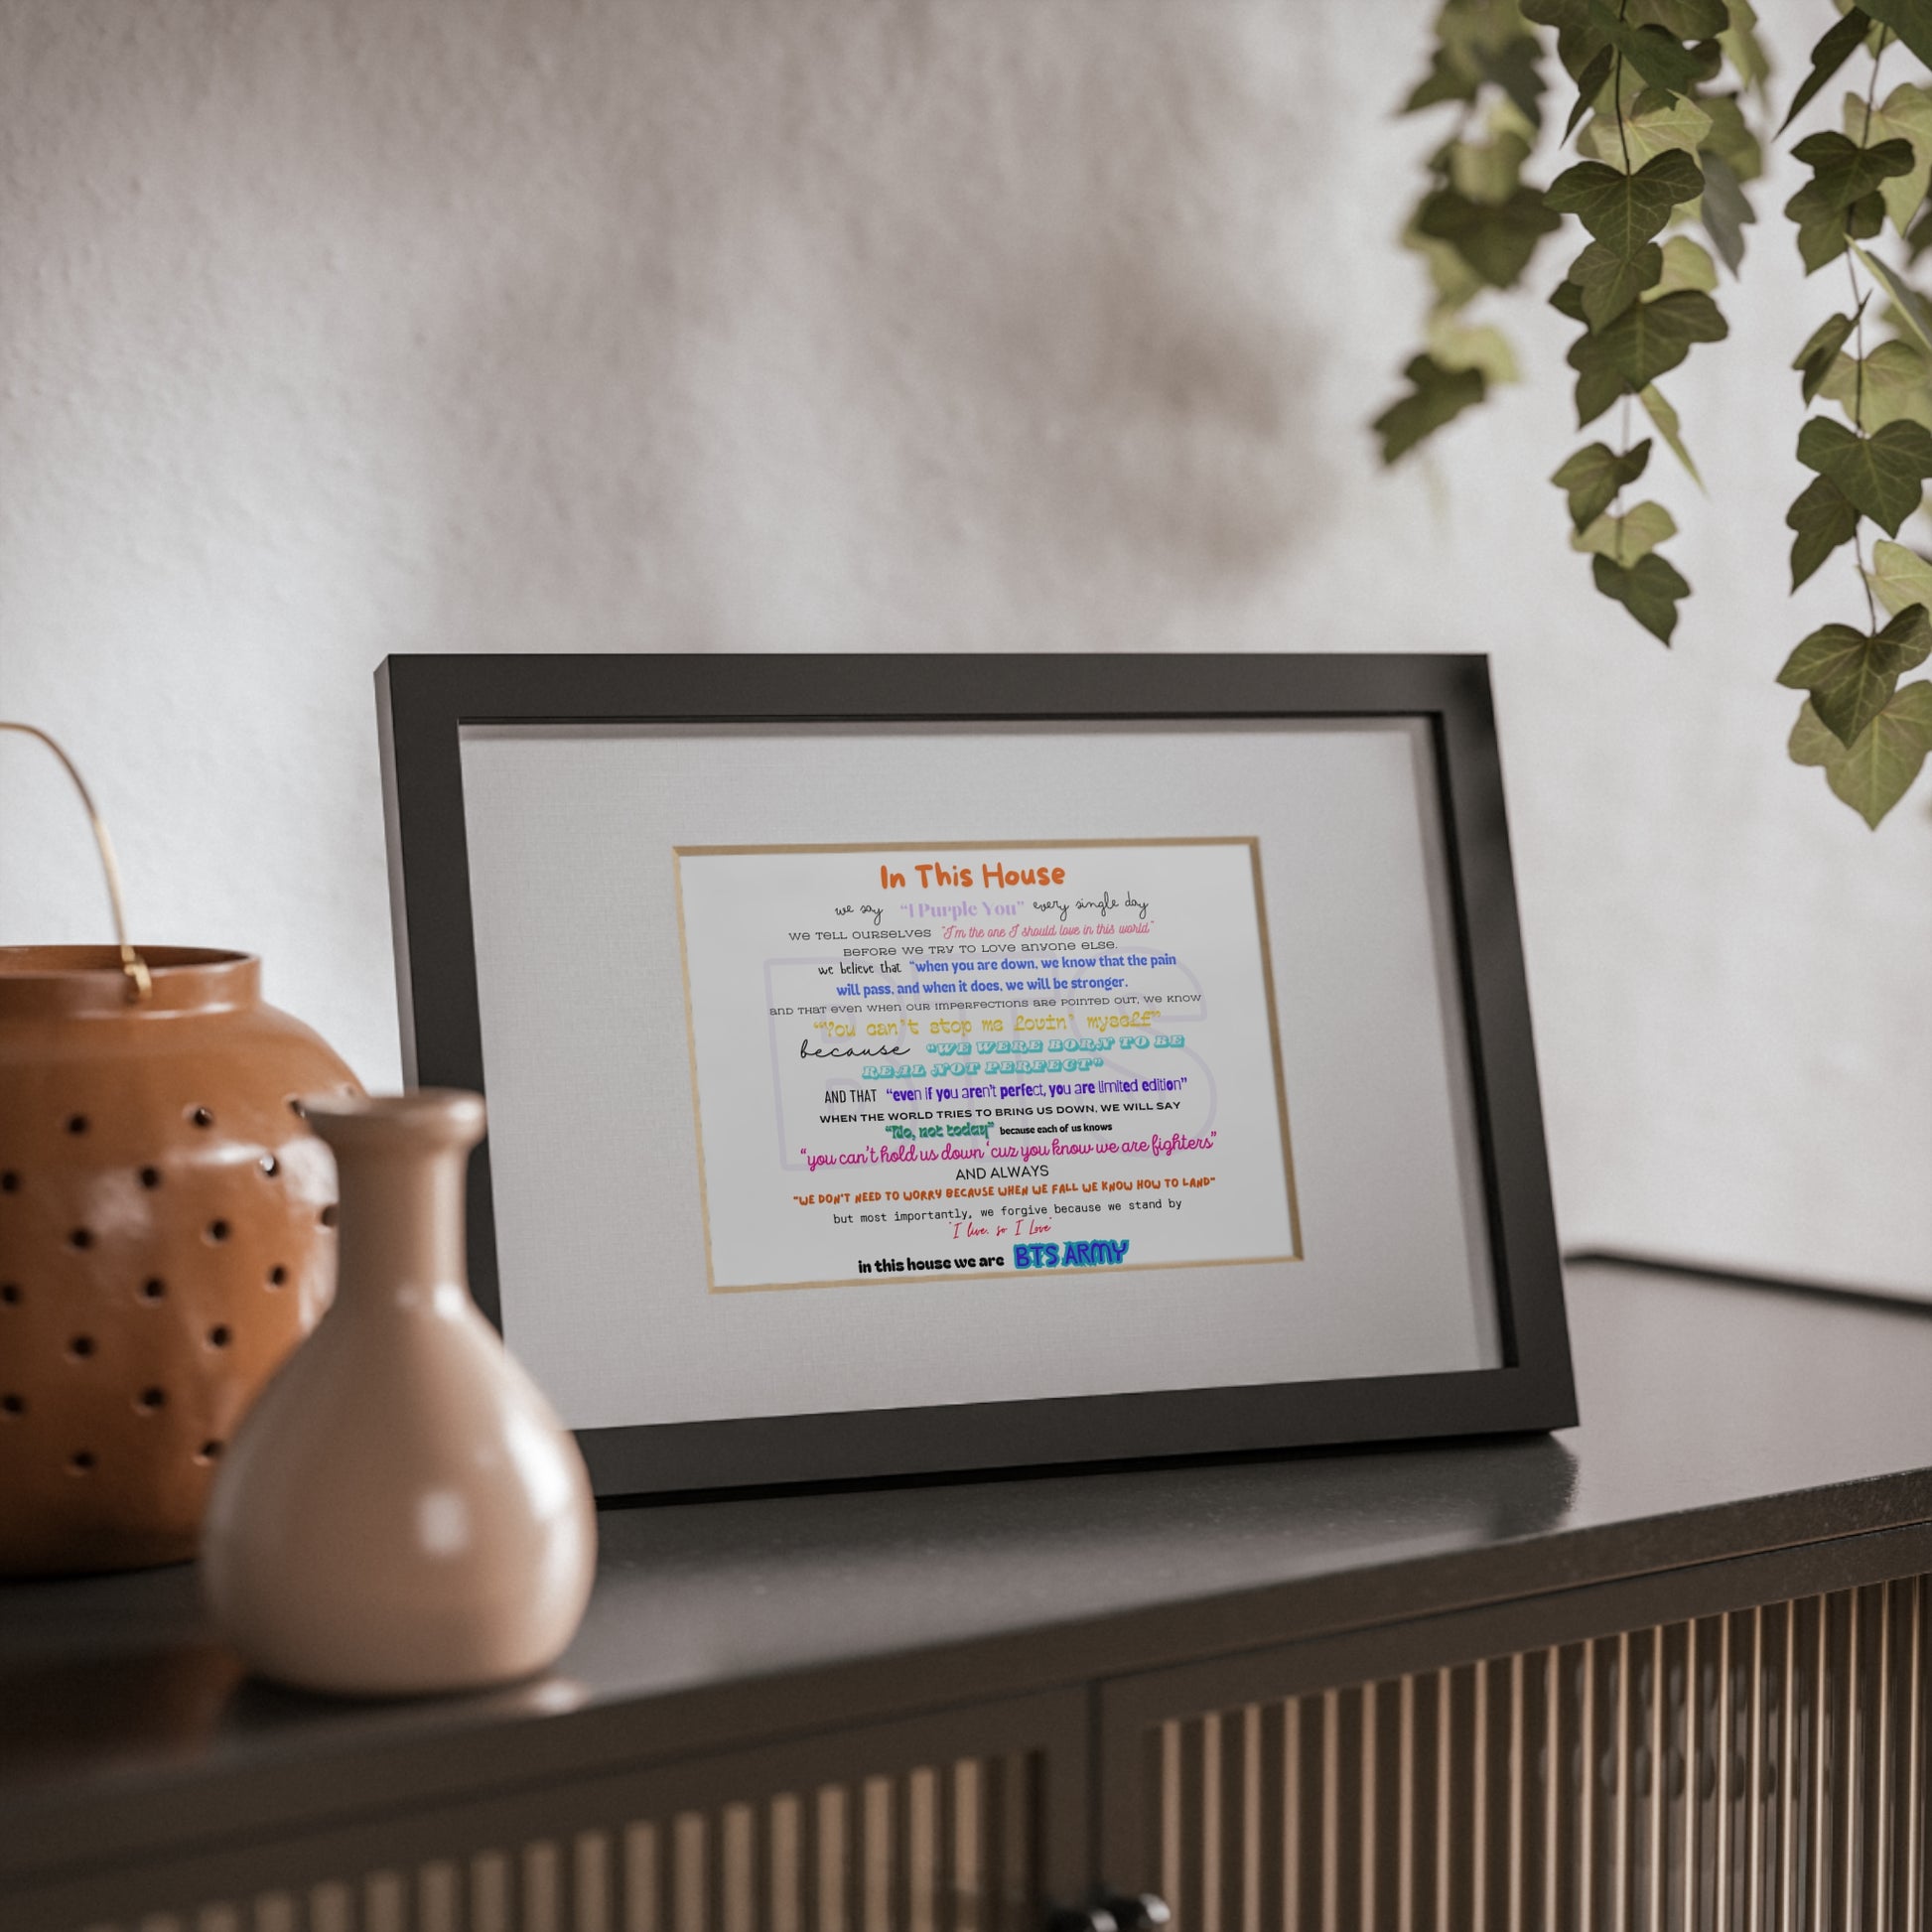 In This House
we say "I Purple You" every single day
WE TELL OURSELVES "I'm the one I should love in this world"
BEFORE WE TRY TO LOVE anyone ELSE.
we believe that "when you are down, we know that the pain
will pass, and when it does, we will be stronger.
and THAT even WHEN OUR IMPERFECTIONS are POINTED OUT, WE KNOW
"You can't stop me lovin' myself"
because "WE WERE BORN TO BE
REAL NOT PERFECT"
AND THAT "even if you aren't perfect, you are limited edition"
WHEN THE WORLD TRIES TO BRING US DOWN, WE WILL SAY
"No, not today" because each of us knows
"you can't hold us down 'cuz you know we are fighters"
AND ALWAYS
"WE DON'T NEED TO WORRY BECAUSE WHEN WE FALL WE KNOW HOW TO LAND"
but most importantly, we forgive because we stand by
"I live, so I Love"
in this house we are BTS ARMY
BTS